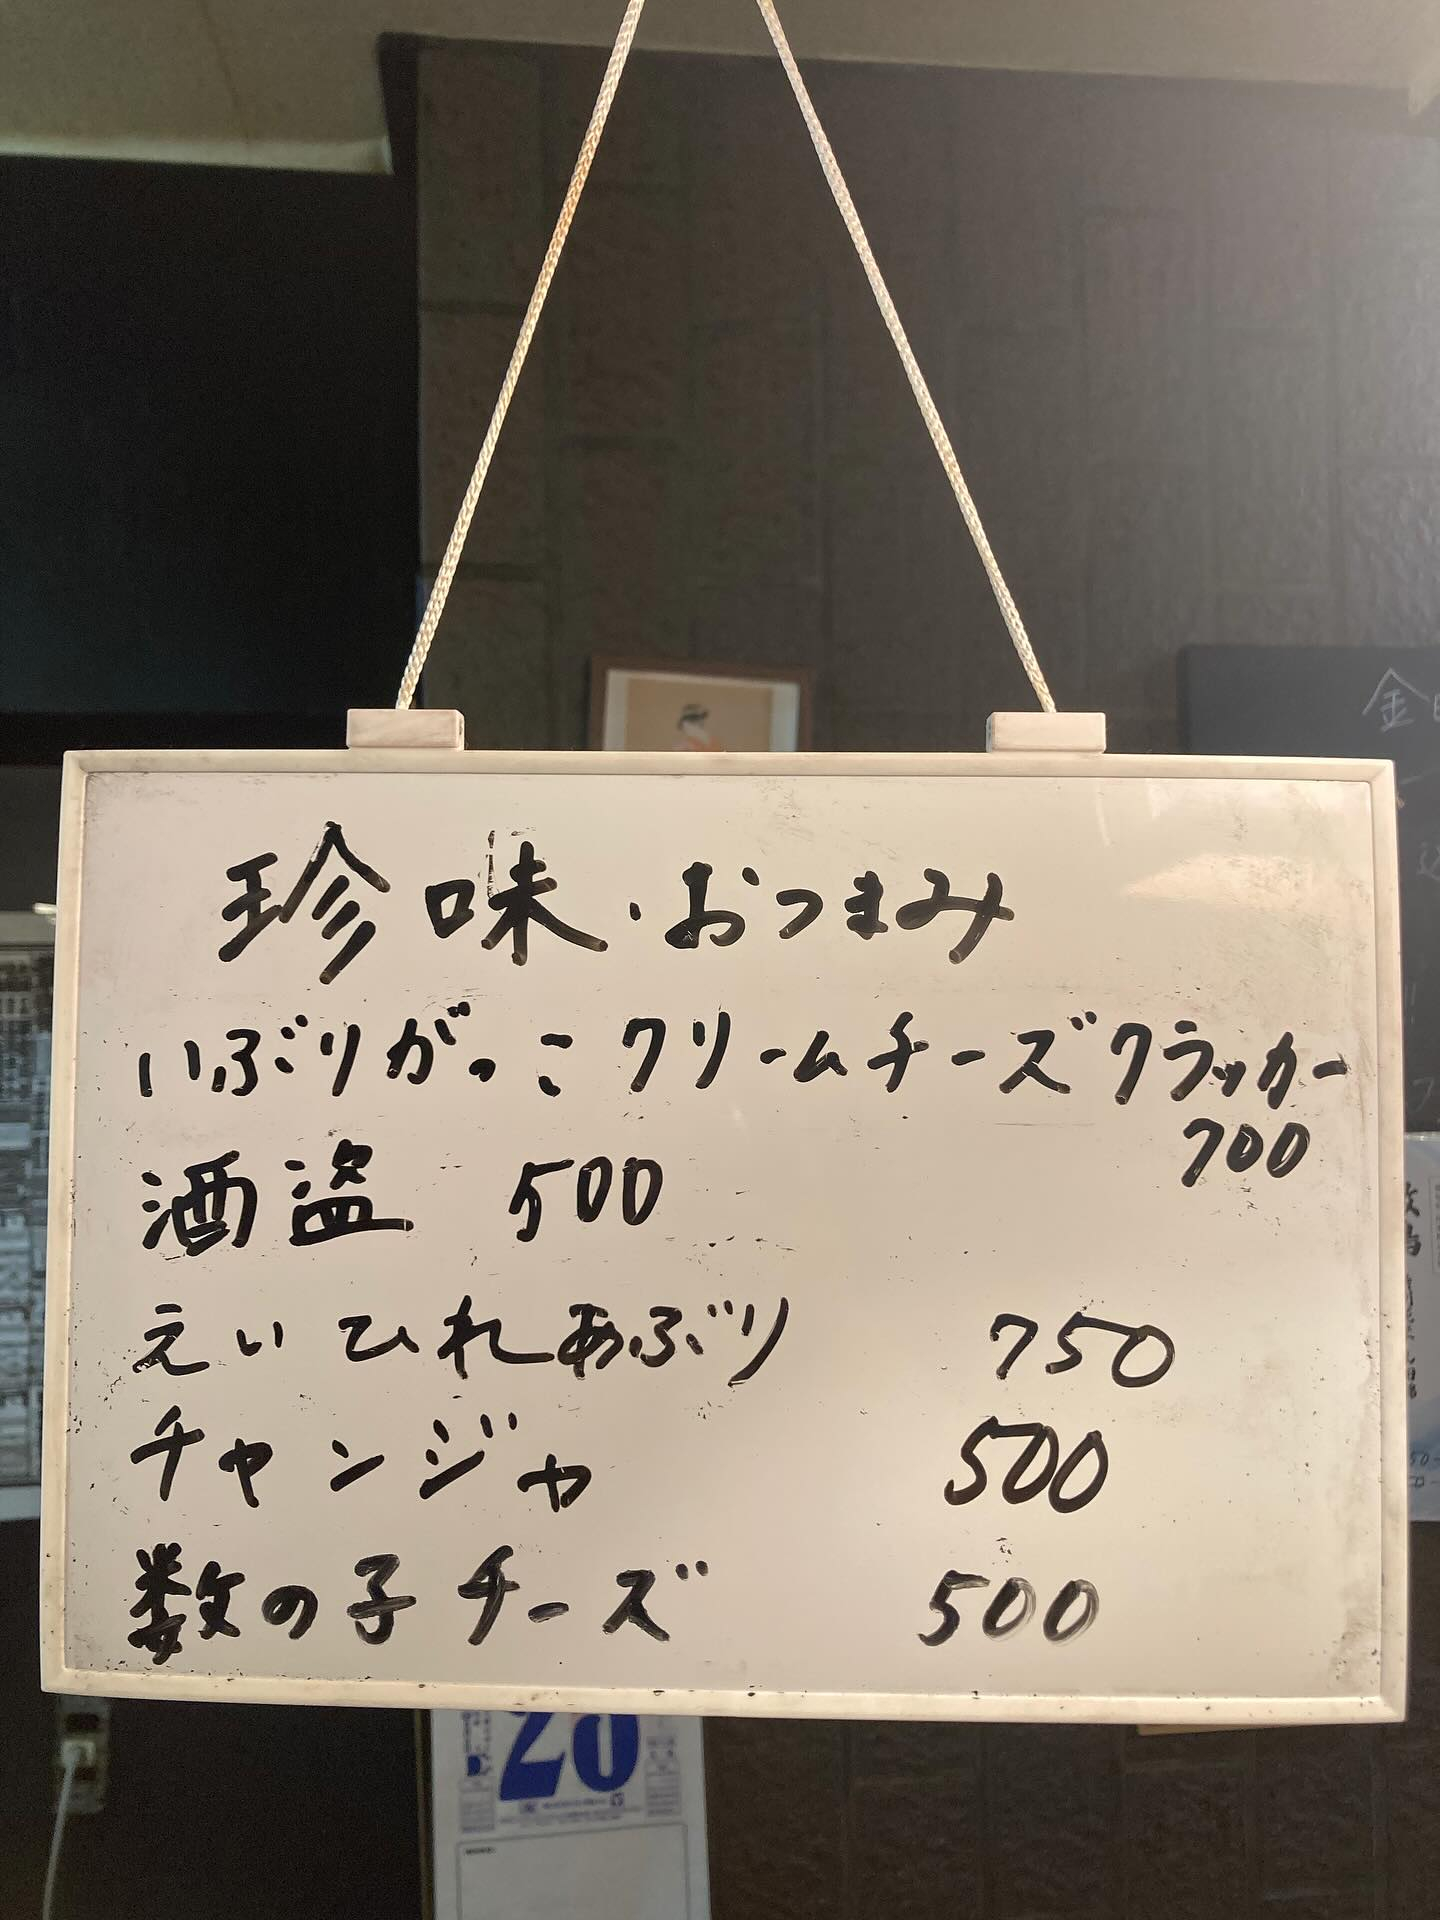 珍味・おつまみ
いぶりがっこクリームチーズクラッカー
700
酒盗 500
えいひれあぶり 750
チャンジャ 500
数の子チーズ 500
金
20